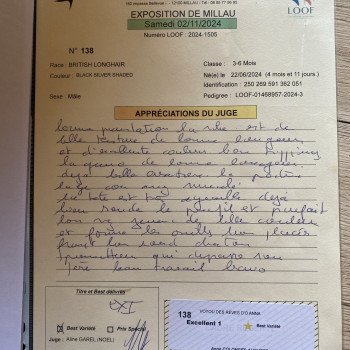 162 impasse Bellevue - 12100 MILLAU - Tél : 06 85 77 90 93
EXPOSITION DE MILLAU
Samedi 02/11/2024
Numéro LOOF : 2024-1505
LOOF
N° 138
Race : BRITISH LONGHAIR
Classe : 3-6 Mois
Couleur : BLACK SILVER SHADED
Né(e) le 22/06/2024 (4 mois et 11 jours.)
Identification : 250 269 591 362 051
Sexe : Mâle
Pedigree : LOOF-01468957-2024-3
APPRÉCIATIONS DU JUGE
bonne présentation la robe est de
belle texture de bonne longueur
et d'excellente couleur bon tipping
la queue de bonne longueur
déjà belle ossature la poitrine
large cou
tête est très déjà
bien ronde le profil est parfait
bon de belle couleur
et forme les oreilles bien placées
front bon chaton
prometteur qui
bon travail bravo
Titre et Best délivrés
EX1
Best Variété
Prix Spécial
Juge : Aline GAREL (NOEL)
VOYOU DES REVES D'ANNA
138
Excellent 1
Best Variété